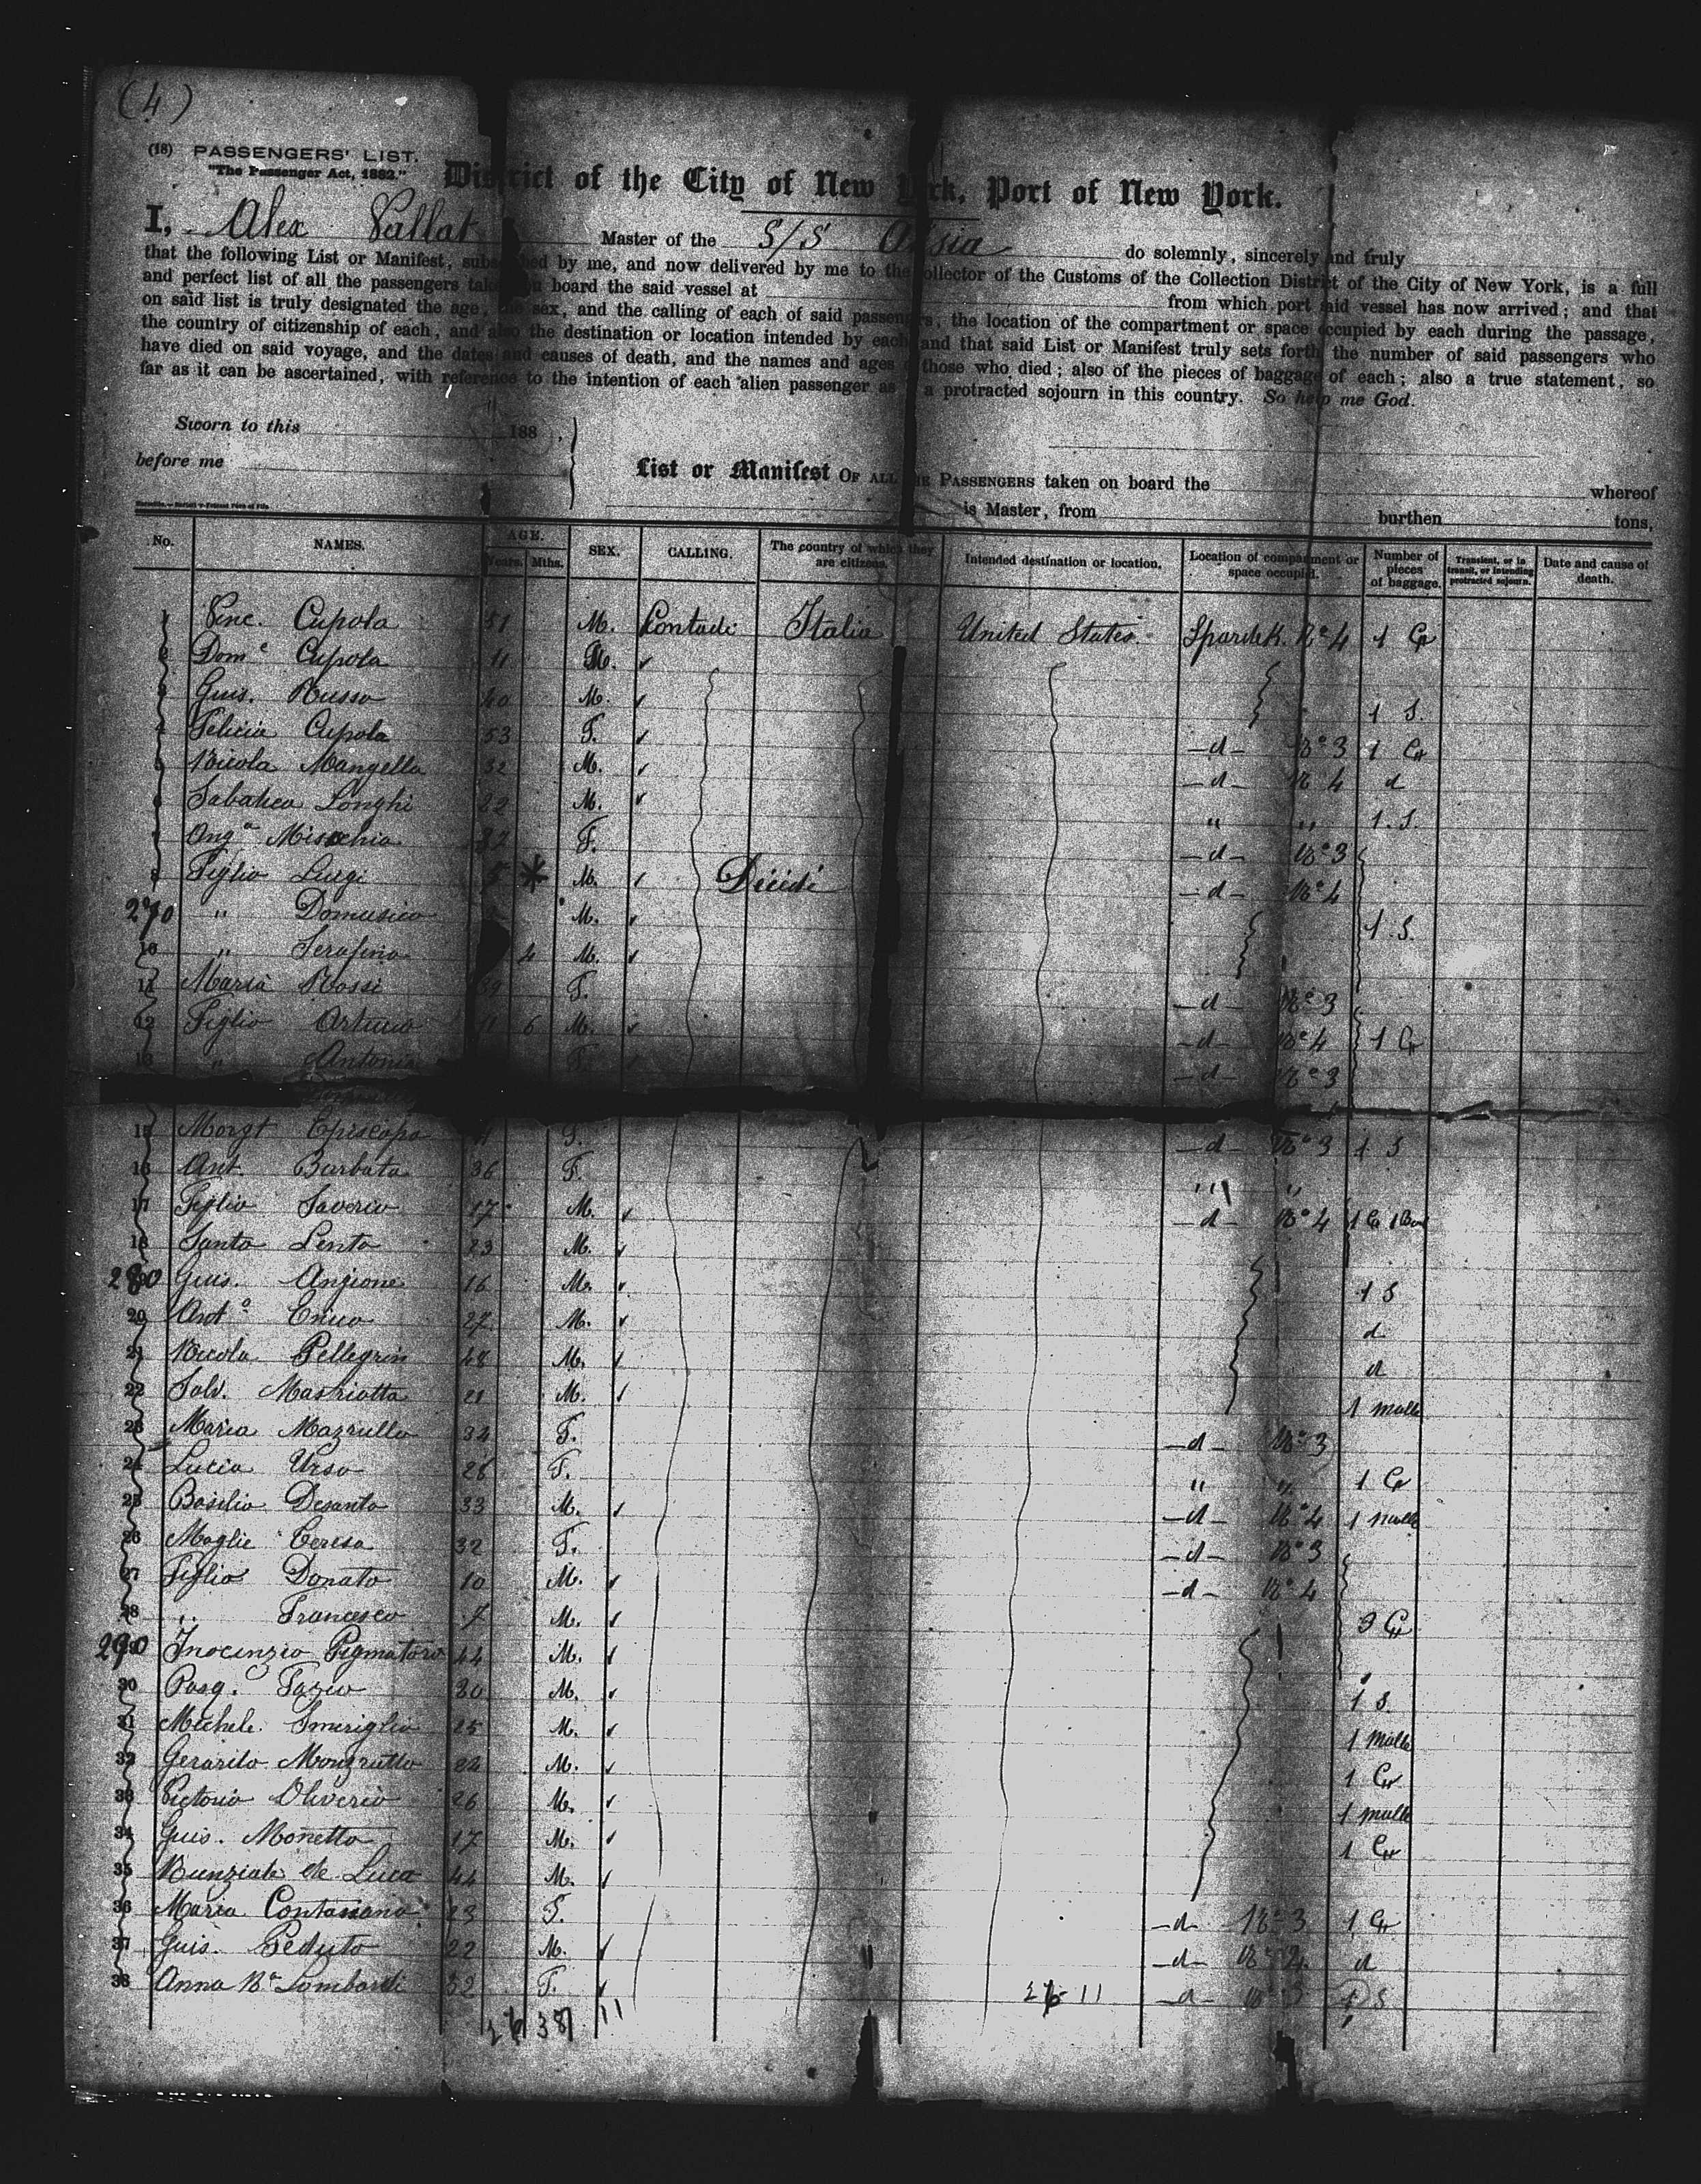 (4)
(18) PASSENGERS' LIST.
"The Passenger Act, 1882."
District of the City of New York, Port of New York.
I, Alex Vallat Master of the S/S Alsia do solemnly, sincerely and truly
that the following List or Manifest, subscribed by me, and now delivered by me to the Collector of the Customs of the Collection District of the City of New York, is a full
and perfect list of all the passengers taken on board the said vessel at from which port said vessel has now arrived; and that
on said list is truly designated the age, the sex, and the calling of each of said passengers, the location of the compartment or space occupied by each during the passage,
the country of citizenship of each, and also the destination or location intended by each and that said List or Manifest truly sets forth the number of said passengers who
have died on said voyage, and the dates and causes of death, and the names and ages of those who died; also of the pieces of baggage of each; also a true statement, so
far as it can be ascertained, with reference to the intention of each alien passenger as a protracted sojourn in this country. So help me God.
Sworn to this 188 ,
before me
List or Manifest OF ALL THE PASSENGERS taken on board the whereof
is Master, from burthen tons,
No. NAMES. AGE. Years. Mths. SEX. CALLING. The country of which they are citizens. Intended destination or location. Location of compartment or space occupied. Number of pieces of baggage. Transient, or in transit, or intending protracted sojourn. Date and cause of death.
1 Vinc. Cupola 51 M. Contadi Italia United States Spardek. No 4 1 Cr
2 Domc Cupola 11 M.
3 Guis. Russo 40 M. 1 S.
4 Felicia Cupola 53 F. -d- No 3 1 Cr
5 Nicola Mangella 32 M. -d- No 4 d
6 Sabatica Longhi 22 M. " " 1 S.
7 Anga Misechia 32 F. -d- No 3
8 Figlio Luigi 5 * M. Décédé -d- No 4
270 " Domenico M. 1 S.
10 " Serafino 4 M.
11 Maria Rossi 39 F. -d- No 3
12 Figlio Arturo 11 6 M. -d- No 4 1 Cr
13 " Antonia F. -d- No 3
15 Morgt Episcopo F. -d- No 3 1 S
16 Ant. Barbata 36 F. " "
17 Figlio Saverio 17 M. -d- No 4
18 Santo Lento 23 M.
280 Guis. Angione 16 M. 1 S
20 Anto Enico 27 M. d
21 Nicola Pellegrin 48 M. d
22 Salv. Mastriotta 21 M. 1 malle
23 Maria Mazzullo 34 F. -d- No 3
24 Lucia Urso 26 F. " " 1 Cr
25 Basilio Desanto 33 M. -d- No 4 1 malle
26 Moglie Teresa 32 F. -d- No 3
27 Figlio Donato 10 M. -d- No 4
28 " Francesco 7 M. 3 Cr
290 Inocenzio Pigmatoro 44 M.
30 Pasq. Fazio 30 M. 1 S.
31 Michele Smeriglio 25 M. 1 malle
32 Gerardo Monzrutto 24 M. 1 Cr
33 Victorio Oliverio 26 M. 1 malle
34 Guis. Monetto 17 M. 1 Cr
35 Nunziato de Luca 44 M.
36 Maria Contassano 23 F. -d- No 3 1 Cr
37 Guis. Peduto 22 M. -d- No 4 d
38 Anna Na Lombardi 32 F. 26 11 -d- No 3 1 S
26 38 11